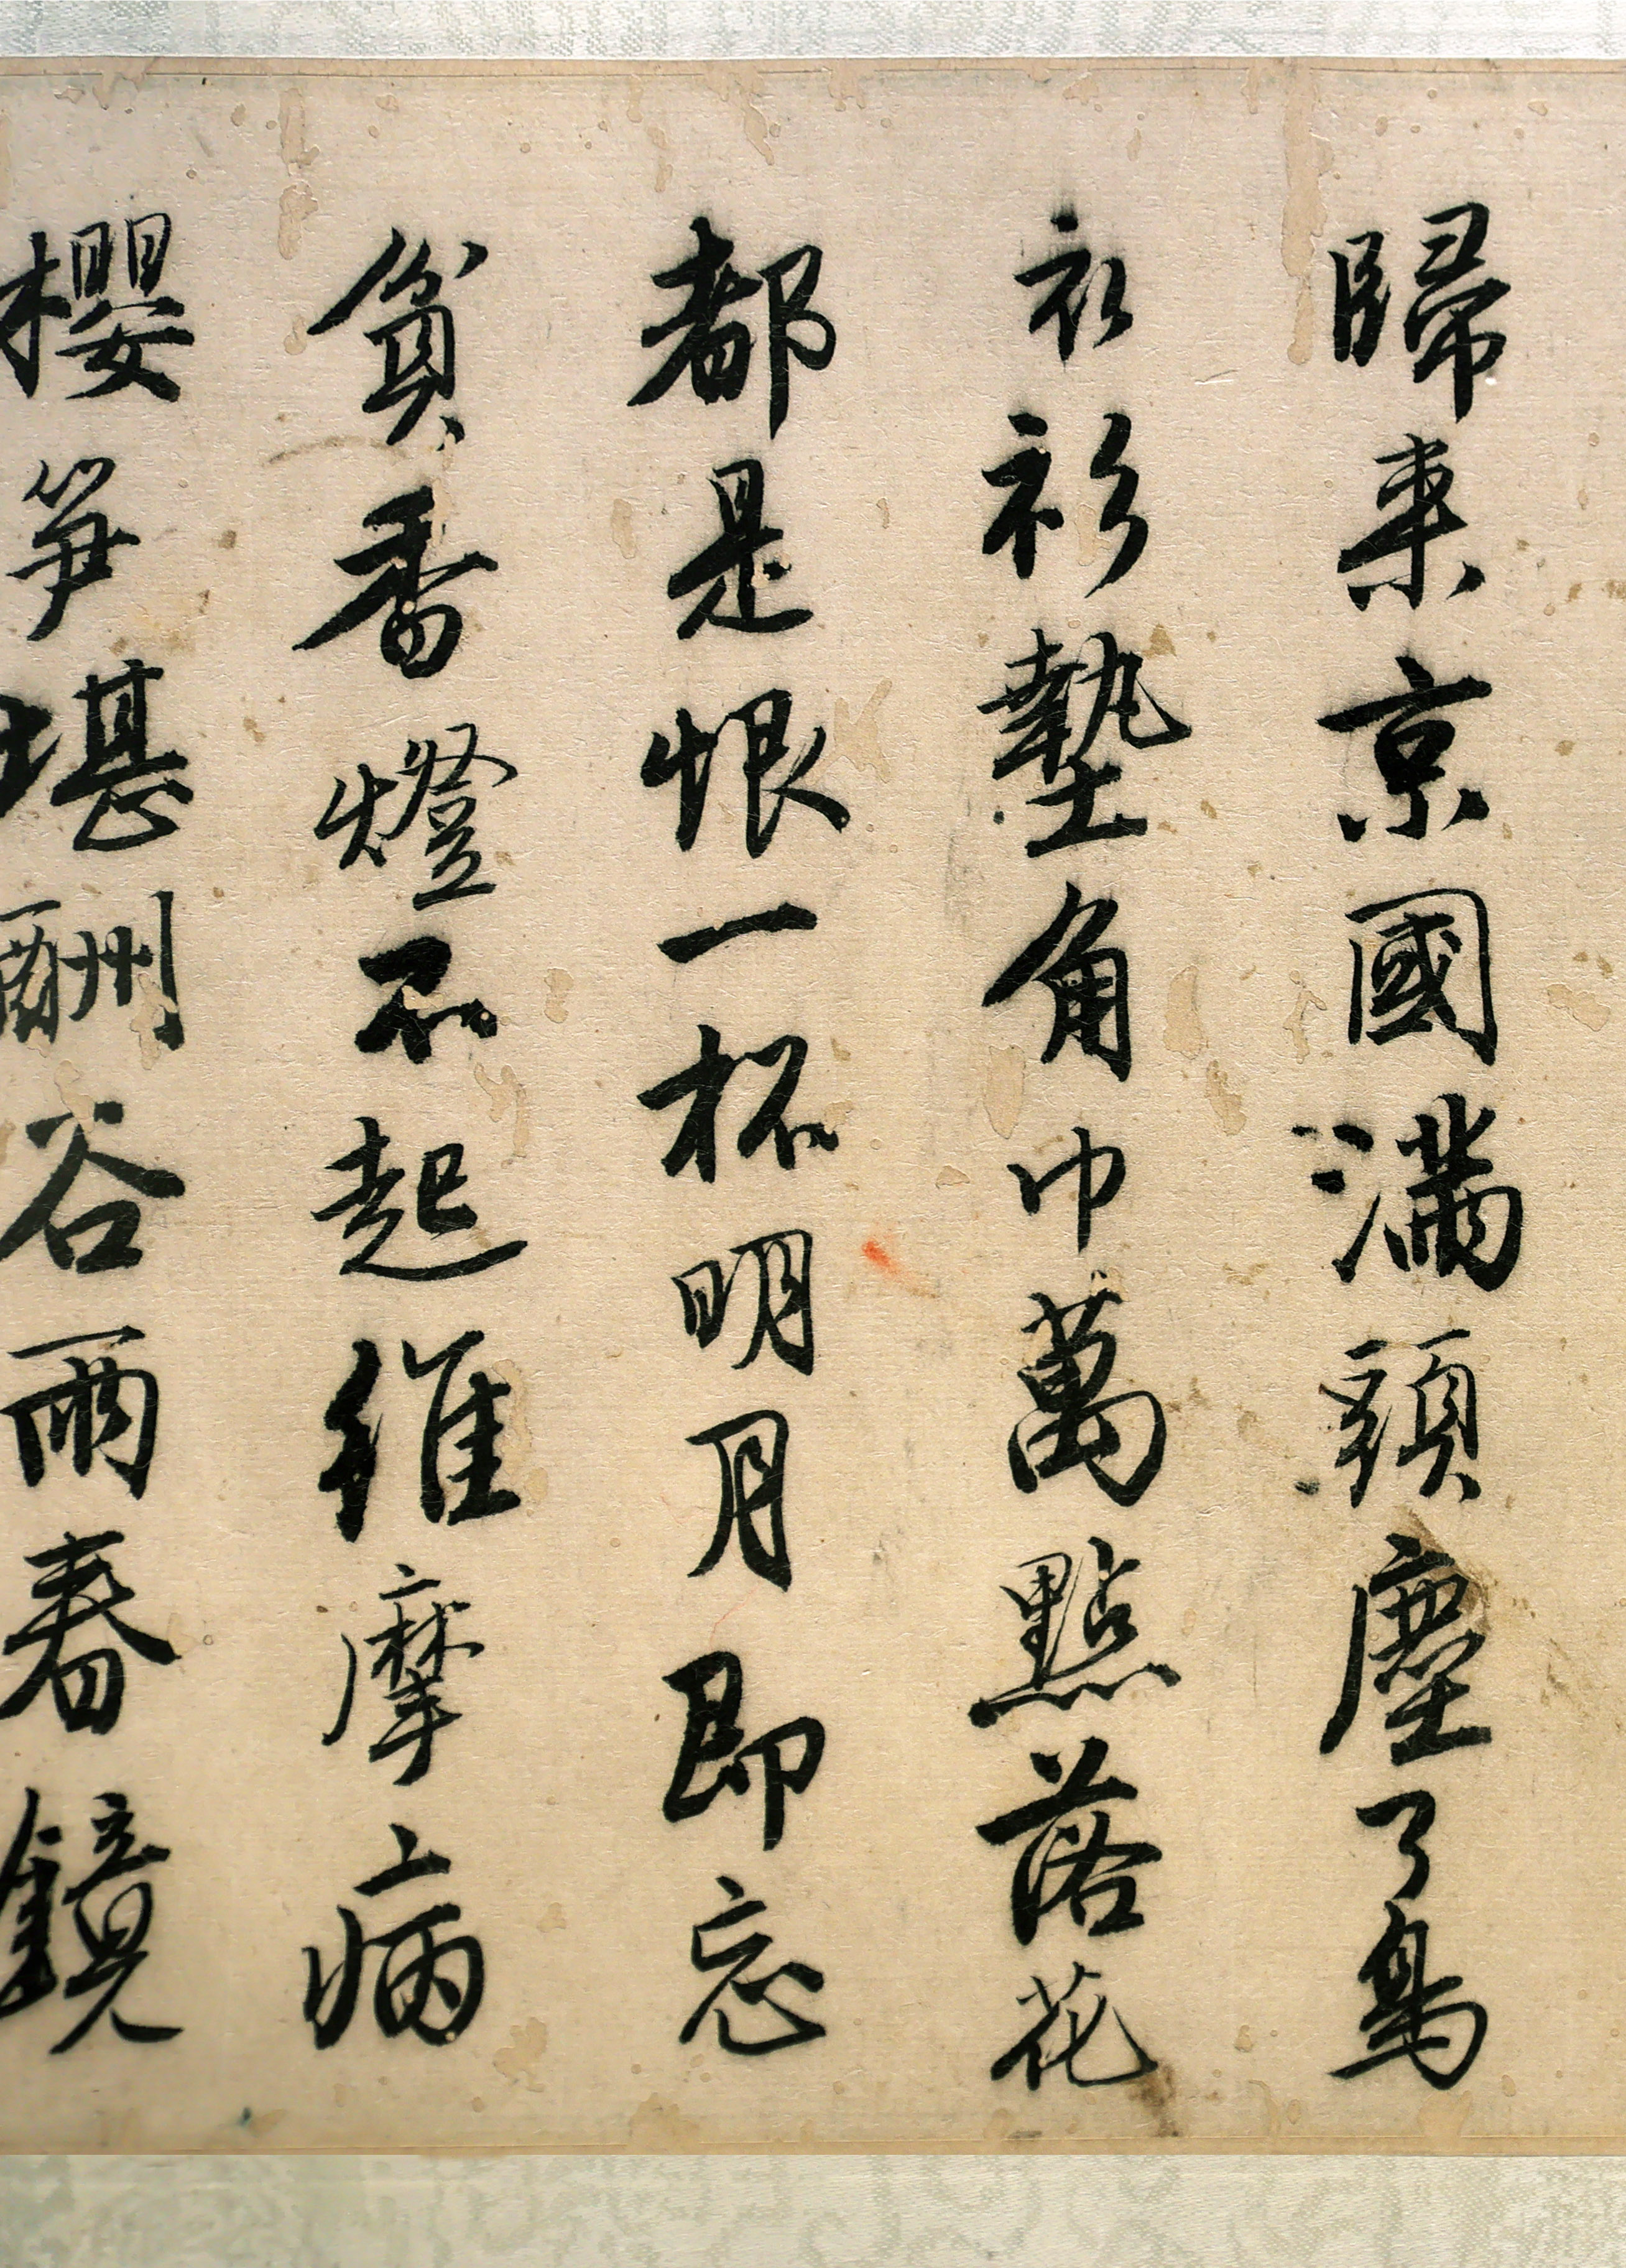 歸来京國滿頭塵了鳥
衣衫墊角巾萬點落花
都是恨一杯明月即忘
貧香燈不起維摩病
櫻笋堪酬谷雨春鏡